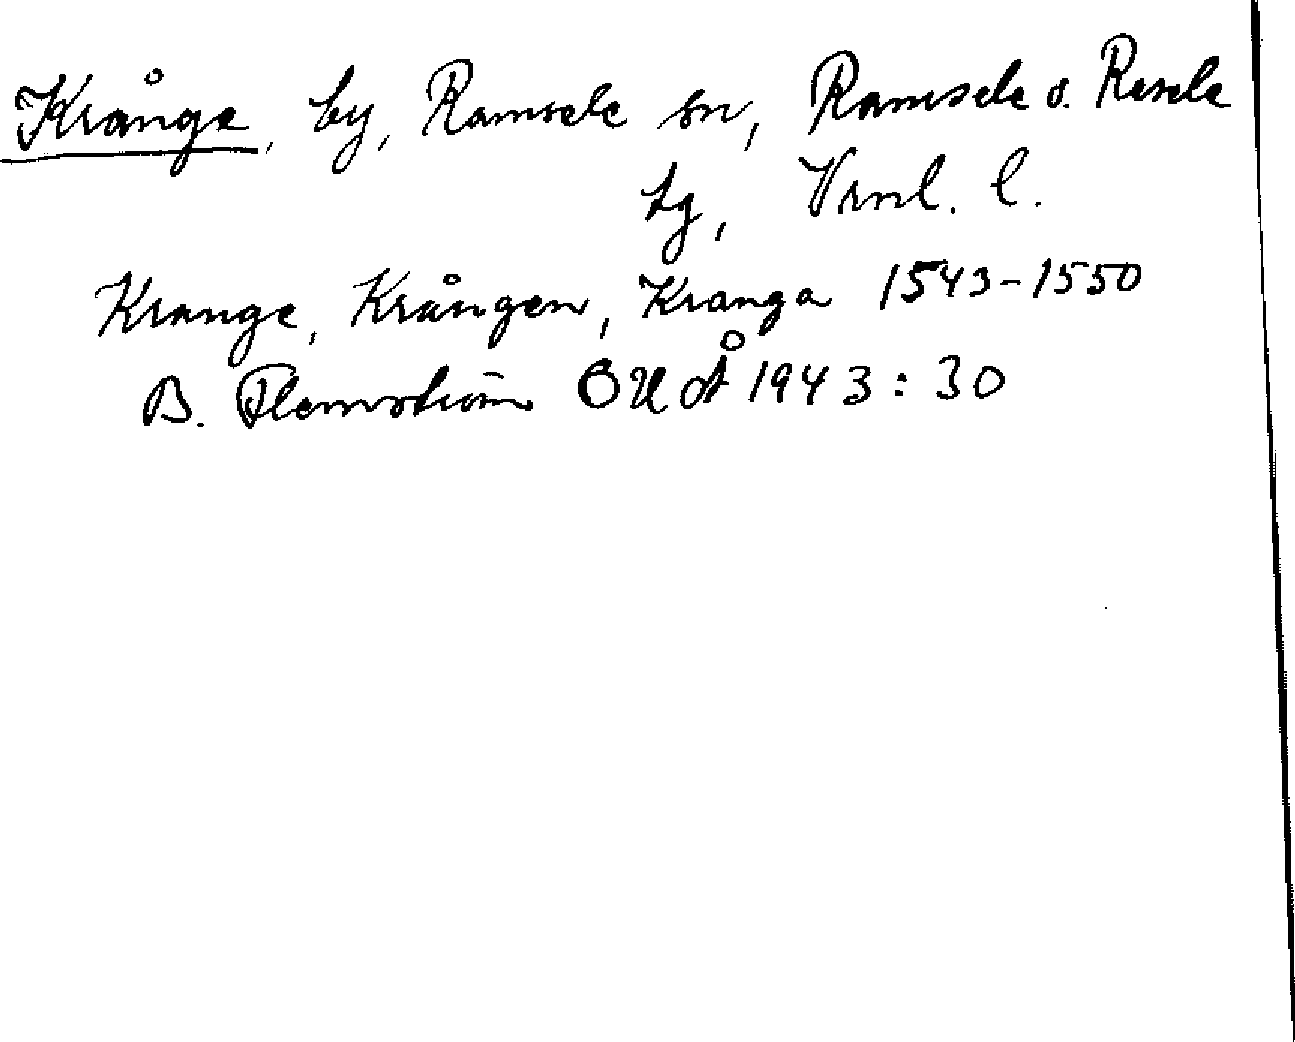 Krånge, by, Ramsele sn, Ramsele o. Resele
tg, Vrnl. l.
Krange, Krången, Kranga 1543-1550
B. Flemström OUÅ 1943:30